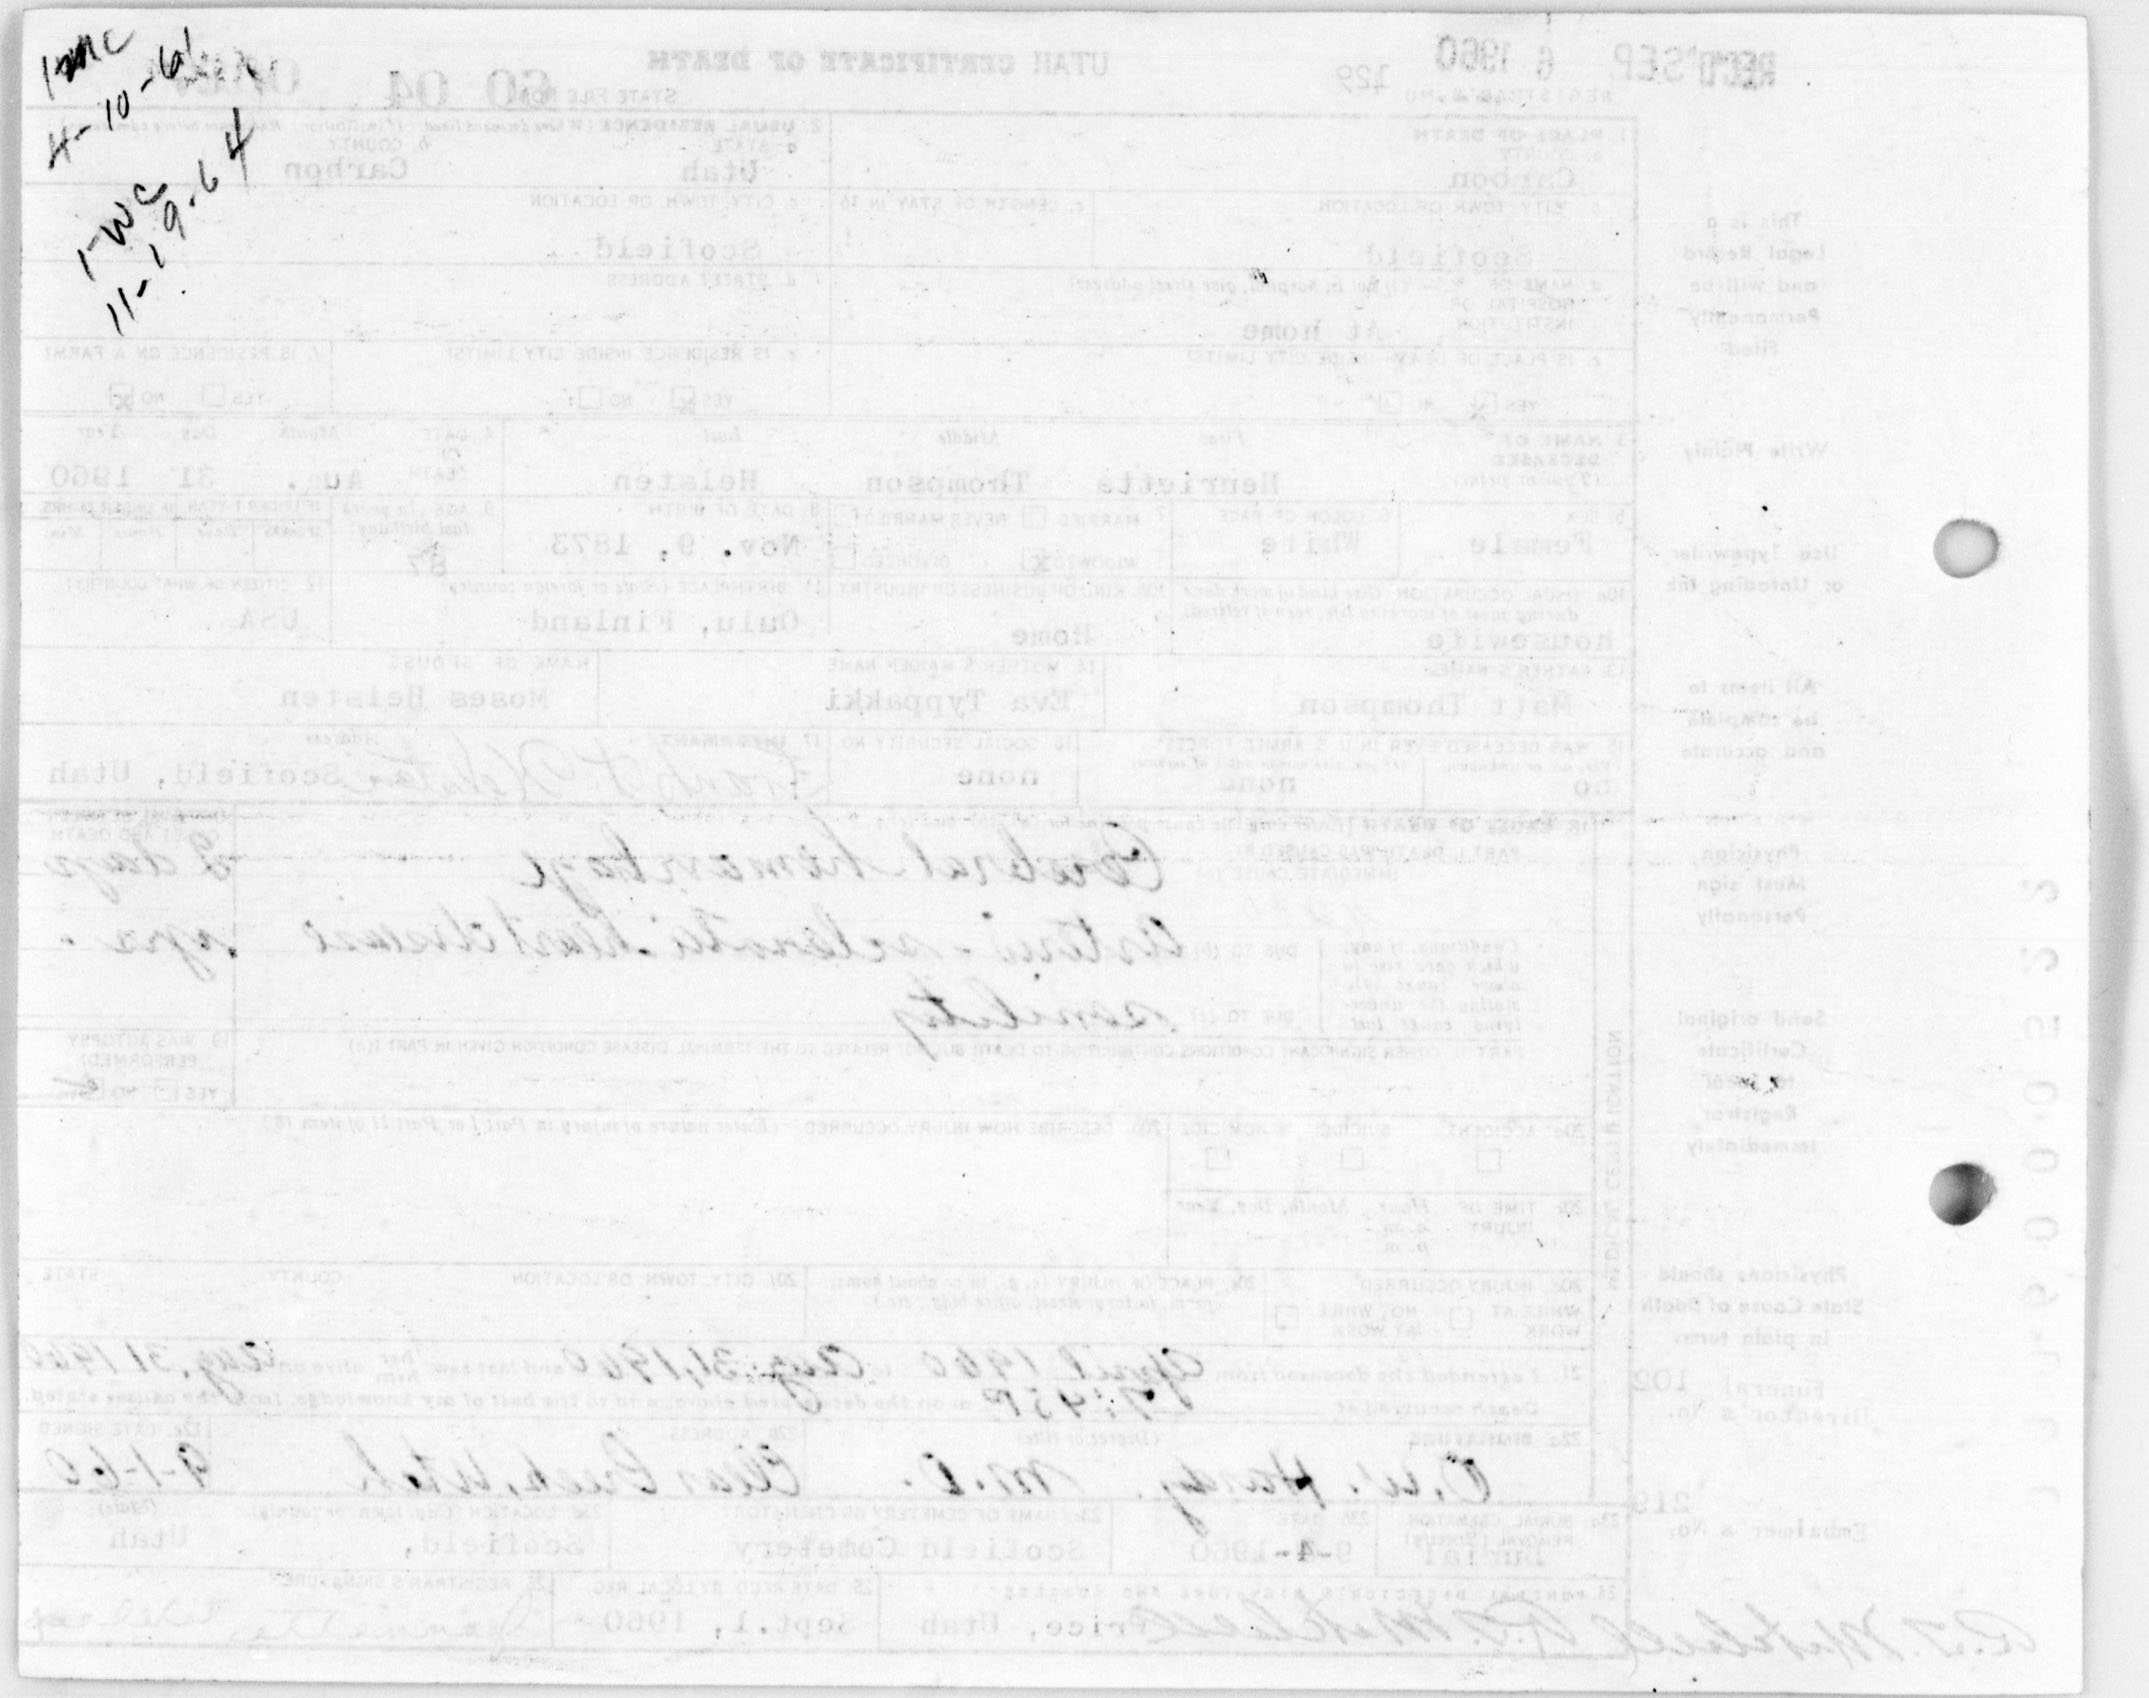 4-10-61
1-WC
11-19-64
REC'D SEP 6 1960
129
UTAH CERTIFICATE OF DEATH
STATE FILE NO. 60 04
REGISTRAR'S NO.
This is a
Legal Record
and will be
Permanently
Filed
1. PLACE OF DEATH
a. COUNTY
Carbon
2. USUAL RESIDENCE
a. STATE
Utah
b. COUNTY
Carbon
b. CITY, TOWN OR LOCATION
Scofield
c. LENGTH OF STAY IN 1b
c. CITY, TOWN OR LOCATION
Scofield
d. NAME OF HOSPITAL OR INSTITUTION (If not in hospital, give street address)
At home
d. STREET ADDRESS
e. IS PLACE OF DEATH INSIDE CITY LIMITS?
YES NO
e. IS RESIDENCE INSIDE CITY LIMITS?
YES NO
f. IS RESIDENCE ON A FARM?
YES NO
Write Plainly
3. NAME OF DECEASED (Type or print)
First Middle Last
Henrietta Thompson Helsten
4. DATE OF DEATH Month Day Year
Aug. 31 1960
Use Typewriter
or Unfading Ink
5. SEX
Female
6. COLOR OR RACE
White
7. MARRIED NEVER MARRIED
WIDOWED X DIVORCED
8. DATE OF BIRTH
Nov. 9, 1873
9. AGE (In years last birthday)
87
IF UNDER 1 YEAR IF UNDER 24 HRS
Months Days Hours Min.
10a. USUAL OCCUPATION (Give kind of work done during most of working life, even if retired)
housewife
10b. KIND OF BUSINESS OR INDUSTRY
Home
11. BIRTHPLACE (State or foreign country)
Oulu, Finland
12. CITIZEN OF WHAT COUNTRY?
USA
All items to
be complete
and accurate
13. FATHER'S NAME
Matt Thompson
14. MOTHER'S MAIDEN NAME
Eva Typpakki
NAME OF SPOUSE
Moses Helsten
15. WAS DECEASED EVER IN U.S. ARMED FORCES?
no none
16. SOCIAL SECURITY NO.
none
17. INFORMANT Address
Helsten Scofield, Utah
Physician
Must sign
Personally
18. CAUSE OF DEATH
PART I. DEATH WAS CAUSED BY:
IMMEDIATE CAUSE (a)
Cerebral hemorrhage
INTERVAL BETWEEN ONSET AND DEATH
2 days
Conditions, if any, which gave rise to above cause (a), stating the underlying cause last.
DUE TO (b)
Arterio-sclerotic heart disease yrs.
DUE TO (c)
senility
Send original
Certificate
to Local
Registrar
Immediately
PART II. OTHER SIGNIFICANT CONDITIONS CONTRIBUTING TO DEATH BUT NOT RELATED TO THE TERMINAL DISEASE CONDITION GIVEN IN PART I(a)
19. WAS AUTOPSY PERFORMED?
YES NO
MEDICAL CERTIFICATION
20a. ACCIDENT SUICIDE HOMICIDE
20b. DESCRIBE HOW INJURY OCCURRED (Enter nature of injury in Part I or Part II of item 18)
20c. TIME OF INJURY Hour Month, Day, Year
a.m.
p.m.
Physicians should
State Cause of Death
in plain terms
20d. INJURY OCCURRED
WHILE AT WORK NOT WHILE AT WORK
20e. PLACE OF INJURY (e.g., in or about home, farm, factory, street, office bldg., etc.)
20f. CITY, TOWN OR LOCATION COUNTY STATE
21. I attended the deceased from April 1960 to Aug. 31, 1960 and last saw her alive on Aug. 31 1960
Death occurred at 7:45 P on the date stated above, and to the best of my knowledge, from the causes stated.
Funeral
Director's No. 102
22a. SIGNATURE (Degree or title)
O. W. Hardy M.D.
22b. ADDRESS
Clear Creek, Utah
22c. DATE SIGNED
9-1-60
Embalmer's No. 219
23a. BURIAL, CREMATION, REMOVAL (Specify)
Burial
23b. DATE
9-4-1960
23c. NAME OF CEMETERY OR CREMATORY
Scofield Cemetery
23d. LOCATION (City, town, or county) (State)
Scofield, Utah
24. FUNERAL DIRECTOR'S SIGNATURE AND ADDRESS
Mitchell Price, Utah
25. DATE RECD. BY LOCAL REG.
Sept. 1, 1960
26. REGISTRAR'S SIGNATURE